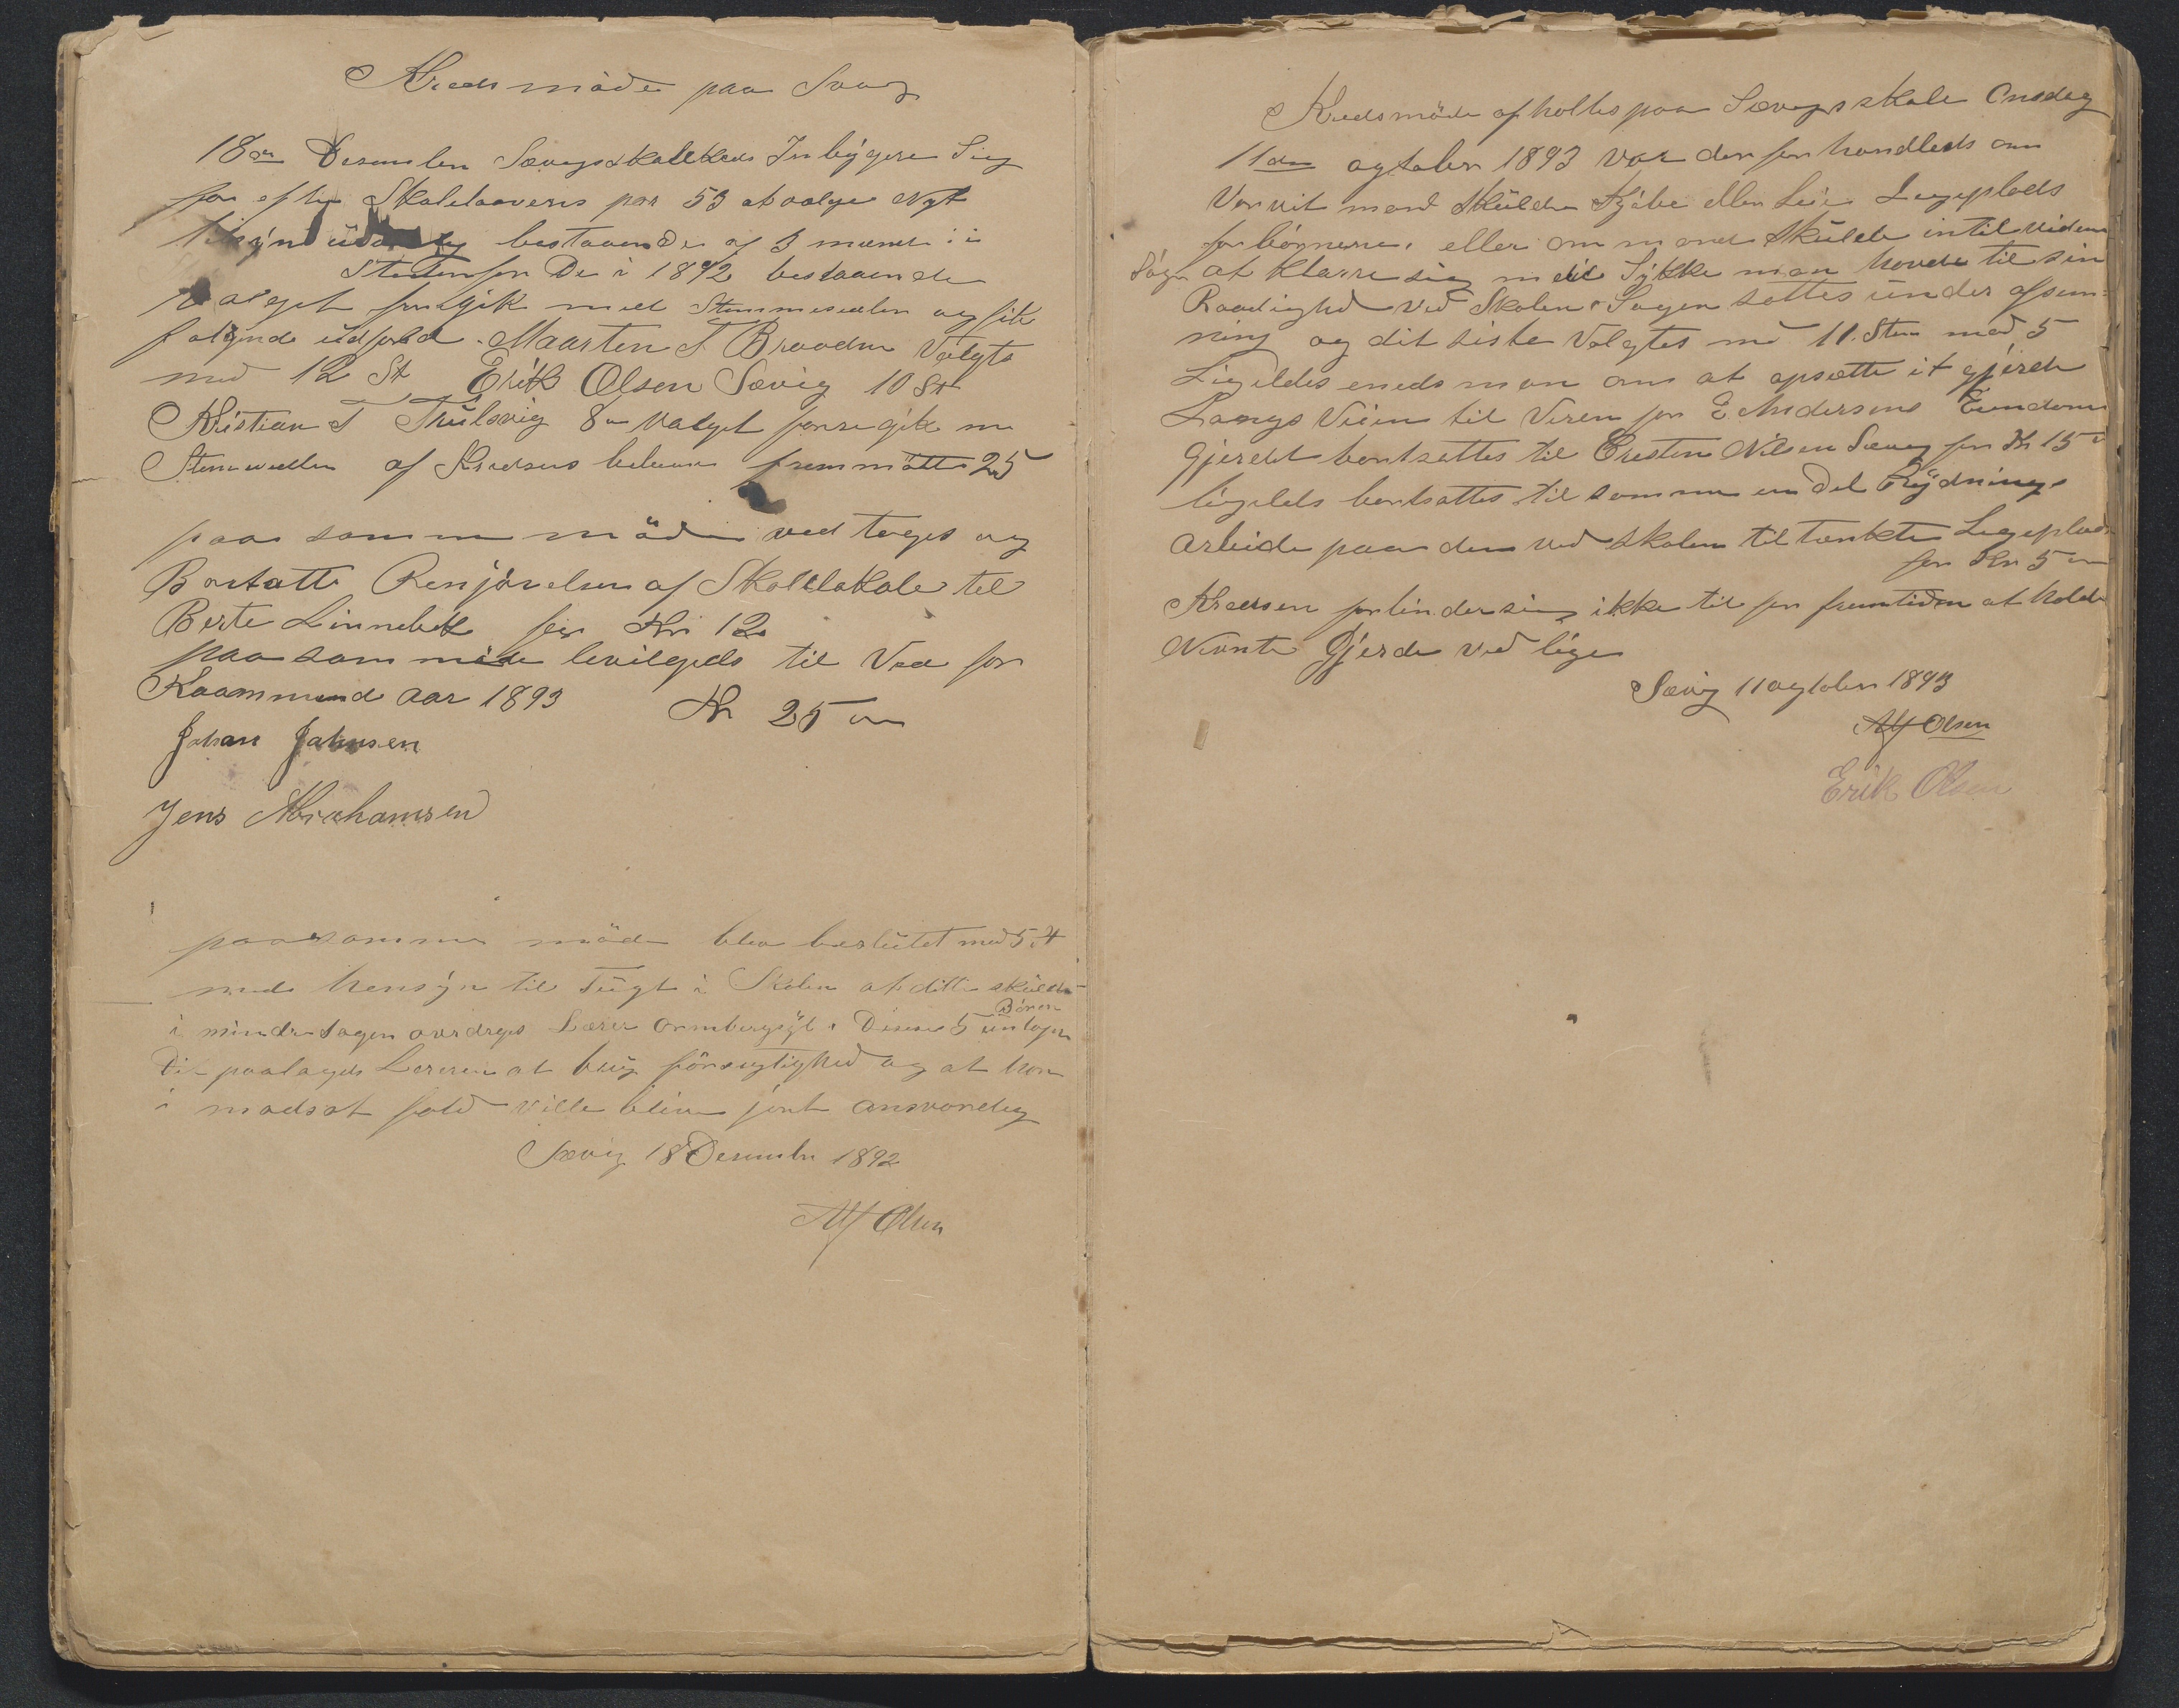 Kredsmöde paa Sævig
18de Desember Sævigs skolekreds Inbygere Sig
for efter Skolelovens par 53 at vælge Nyt
tilsyns udvalg bestaaende af 3 mænd i
Steden for De i 1892 bestaaende
Valget foregik med Stemmesedler og fik
følgende udfald. Maarten T Braadn Valgts
med 12 St Erik Olsen Sævig 10 St
Kristian T Thulsvig 8 Valget foregik m
Stemmesedler af Kredsens beboere fremmötte 25
paa samme möde ved toges og
Bortsatte Renjörelsen af Skolelokale til
Berte Linnebek for Kr 12
paa samme möde bevilgeds til Ved for
Kaammend aar 1893 Kr 25
Johan Johnsen
Jens Abrahamsen
paa samme möde blev beslutet med 5. 4
med hensyn til Tugt i Skolen at dette skulde
i mindre sagen overdrges Lærer Börn
Det paalagds Læreren at brug försigtighed og at han
i modsat fald ville blive jort ansvarlig
Sævig 18 Desember 1892
Alf Olsen
Kredsmöde af holtes paa Sævigs skole Onsdag
11den ogtober 1893 Var der for handleds om
Vor vit mand skulde Kjöbe eller Leie Legeplads
for börnene, eller om mand skulde intil videre
Söge at Klarre sig med it Sykke man havde til sin
Raadighed ved Skolen. Sagen sattes under afsem-
ning og dit siste Valgtes med 11. Stem mod 5
Ligeldes eneds man om at opsætte it gjerde
Langs Veien til Veren for E Andersens Eiendom
Gjerdet bortsattes til Cresten Nilsen Sævig for Kr 15
ligelds bortsattes til samme en Del Rydnings
Arbeide paa den ved skolen til tænkte Legeplads
for Kr 5
Kredsen forbinder sig ikke til for fremtiden at holde
Nevnte Gjerde ved lige
Sævig 11 ogtober 1893
Alf Olsen
Erik Olsen